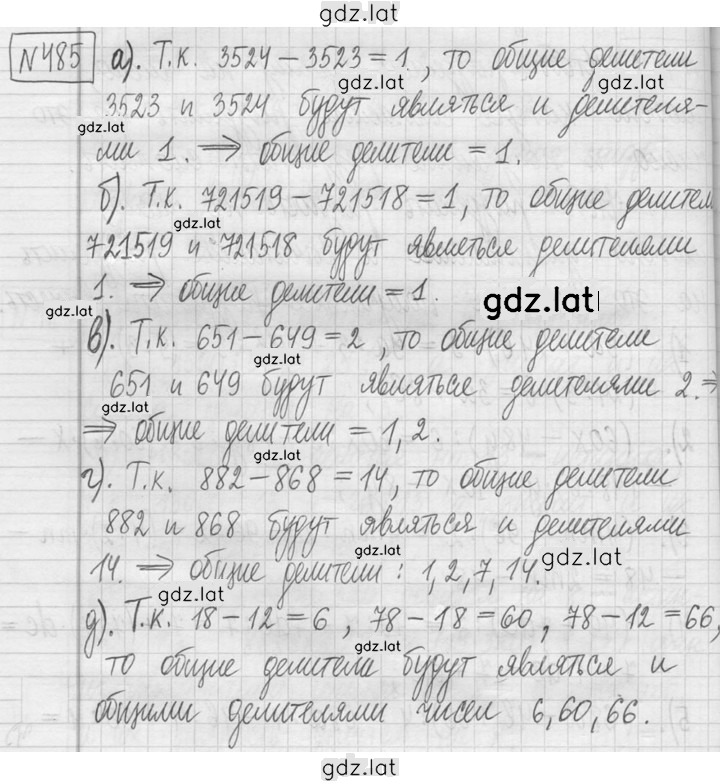 gdz.lat
№485 а). Т.к. 3524 - 3523 = 1, то общие делители
gdz.lat
3523 и 3524 будут являться и делителя-
gdz.lat
ми 1. ⟹ общие делители = 1.
б). Т.к. 721519 - 721518 = 1, то общие делител
gdz.lat
721519 и 721518 будут являться делителями
1. ⟹ общие делители = 1. gdz.lat
gdz.lat
в). Т.к. 651 - 649 = 2, то общие делители
gdz.lat
651 и 649 будут являться делителями 2. ⇒
gdz.lat
⟹ общие делители = 1, 2.
gdz.lat
г). Т.к. 882 - 868 = 14, то общие делители
882 и 868 будут являться и делителями
gdz.lat
14. ⟹ общие делители : 1, 2, 7, 14. gdz.lat
gdz.lat
д). Т.к. 18 - 12 = 6, 78 - 18 = 60, 78 - 12 = 66,
gdz.lat
то общие делители будут являться и
общими делителями чисел 6, 60, 66.
gdz.lat